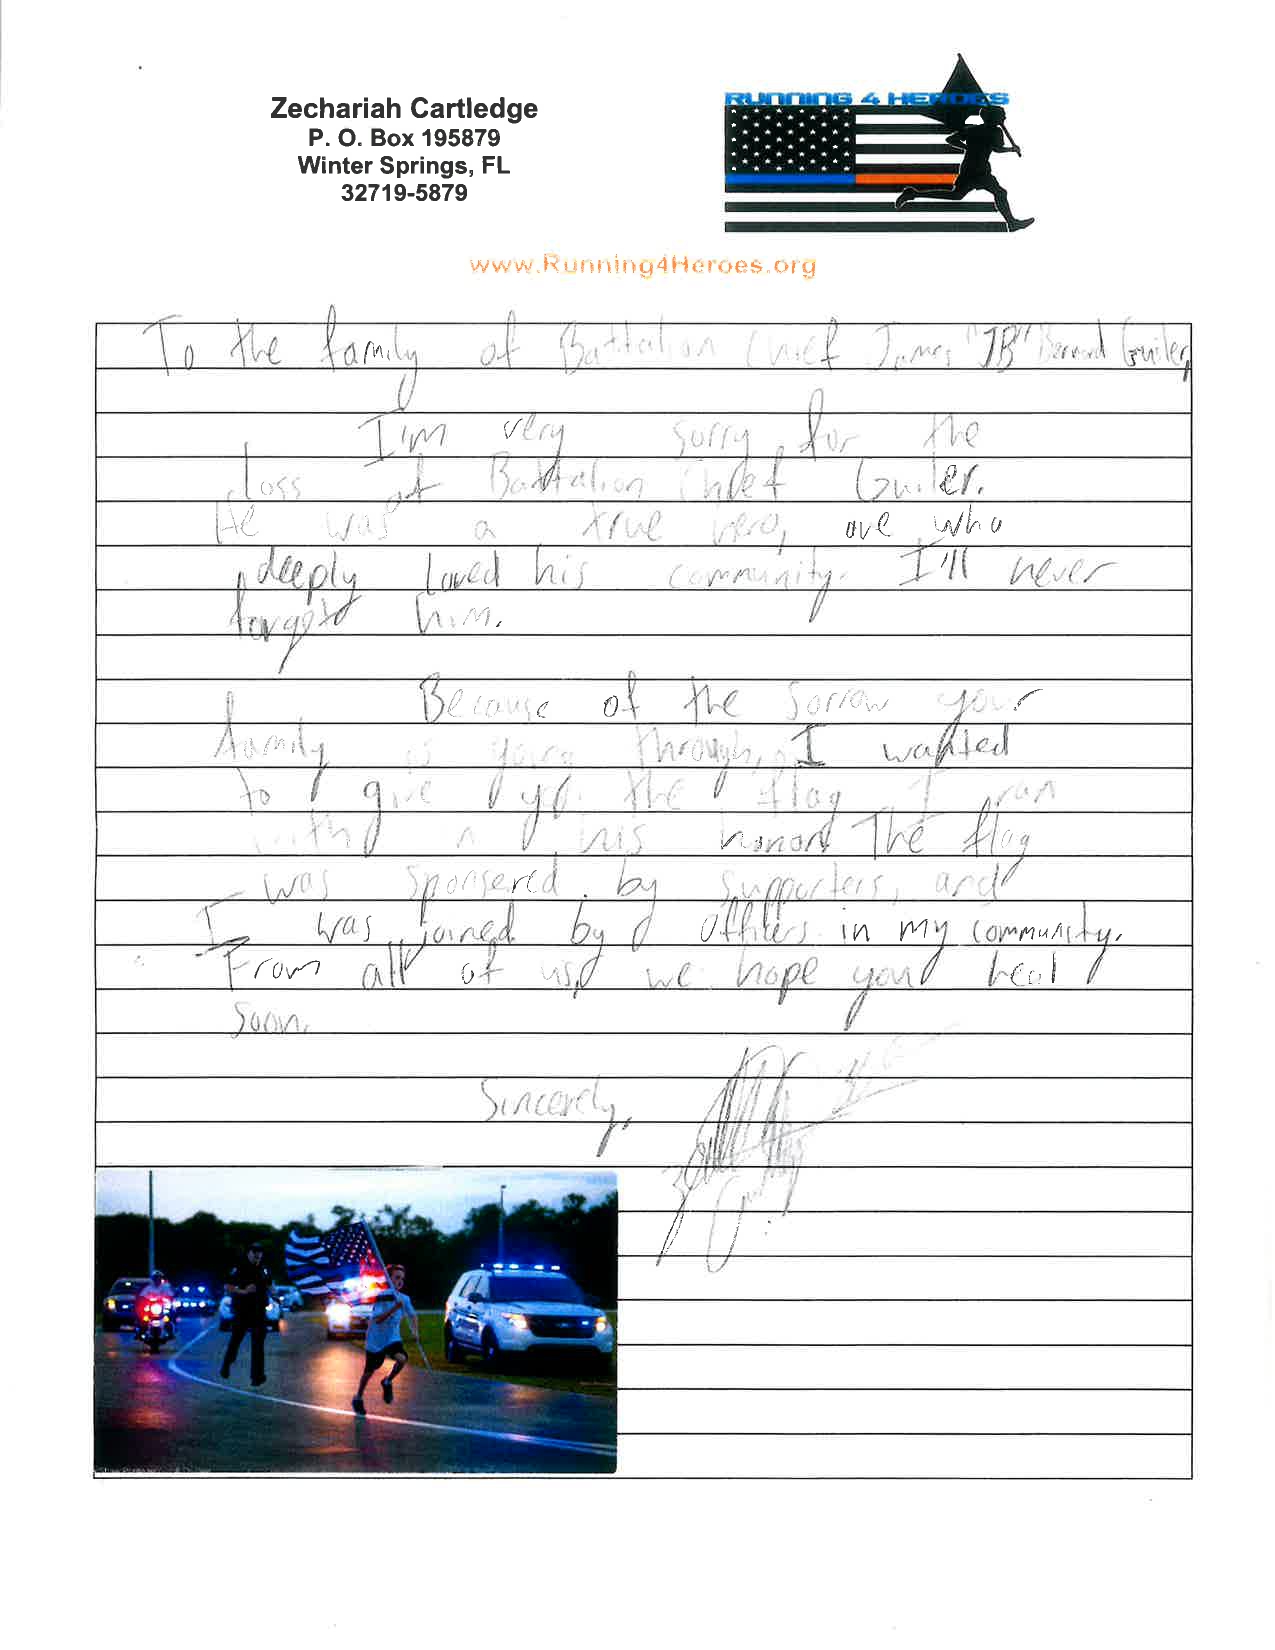 Zechariah Cartledge
P. O. Box 195879
Winter Springs, FL
32719-5879
RUNNING 4 HEROES
www.Running4Heroes.org
To the family of Battalion Chief James "JB" Bernard Guiler,
I'm very sorry for the
loss of Battalion Chief Guiler.
He was a true hero, one who
deeply loved his community. I'll never
forget him.
Because of the sorrow your
family is going through, I wanted
to give you the flag I ran
with in his honor. The flag
was sponsered by supporters, and
I was joined by officers in my community.
From all of us, we hope you heal
soon.
Sincerely,